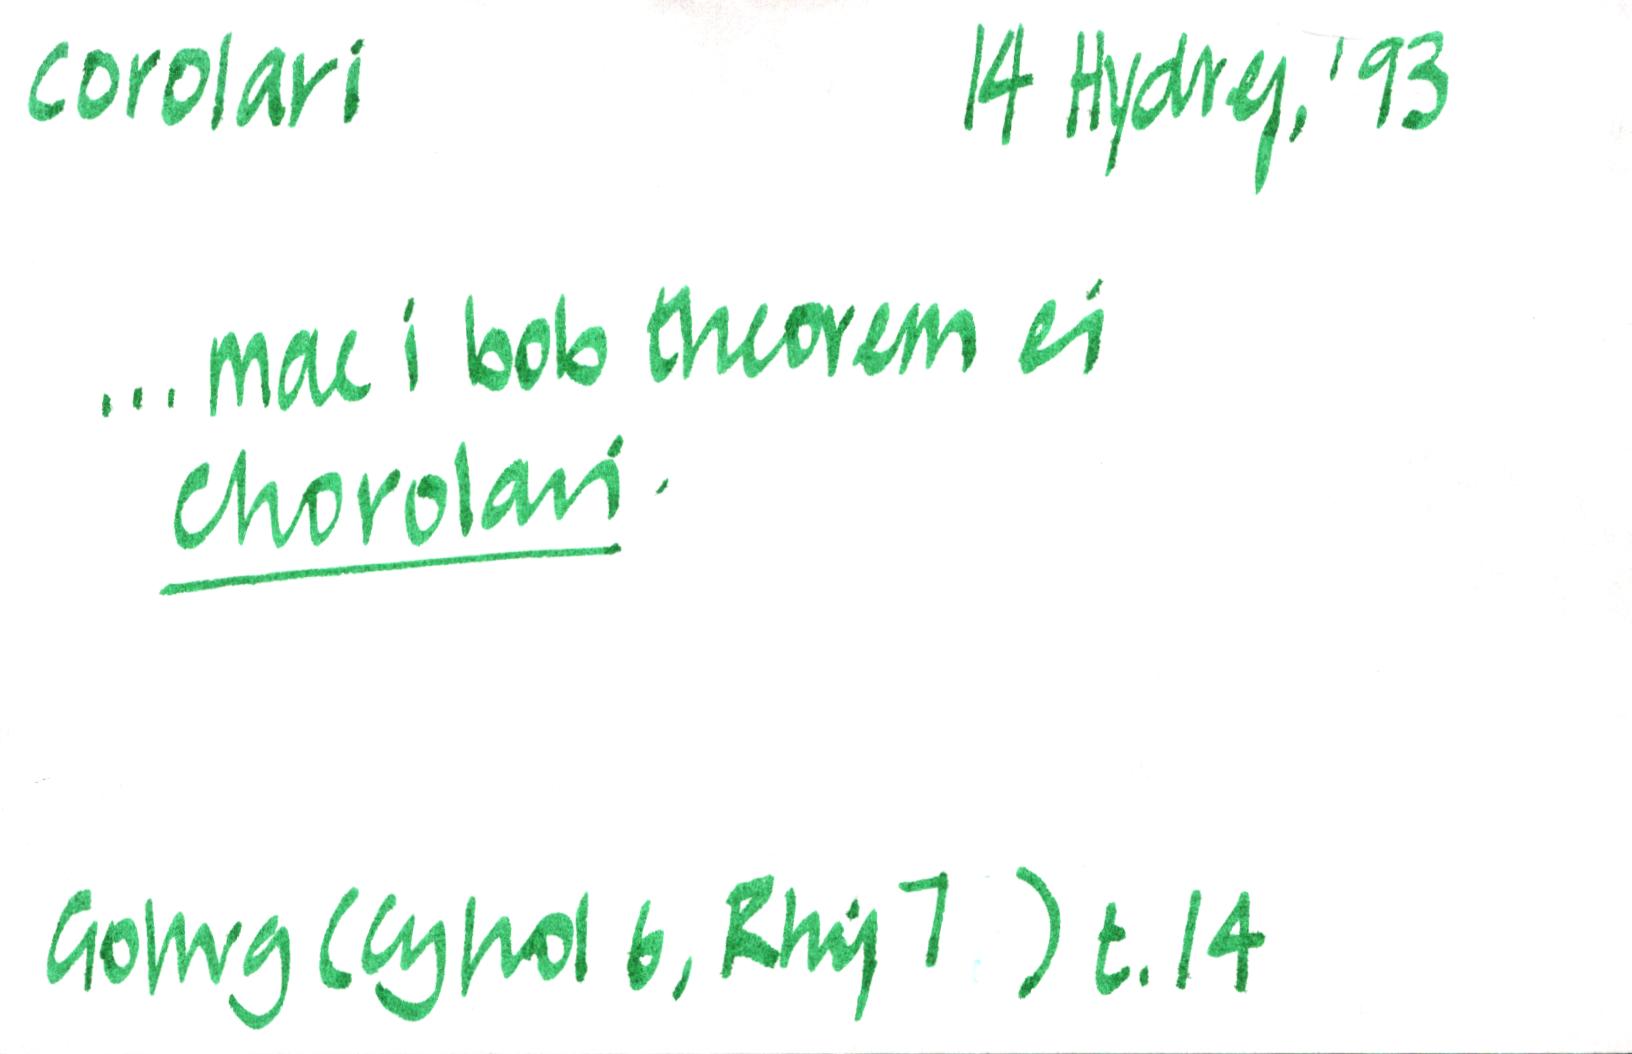 corolari 14 Hydref, '93
...mae i bob theorem ei
chorolari.
Golwg (Cyfrol 6, Rhif 7 ) t.14